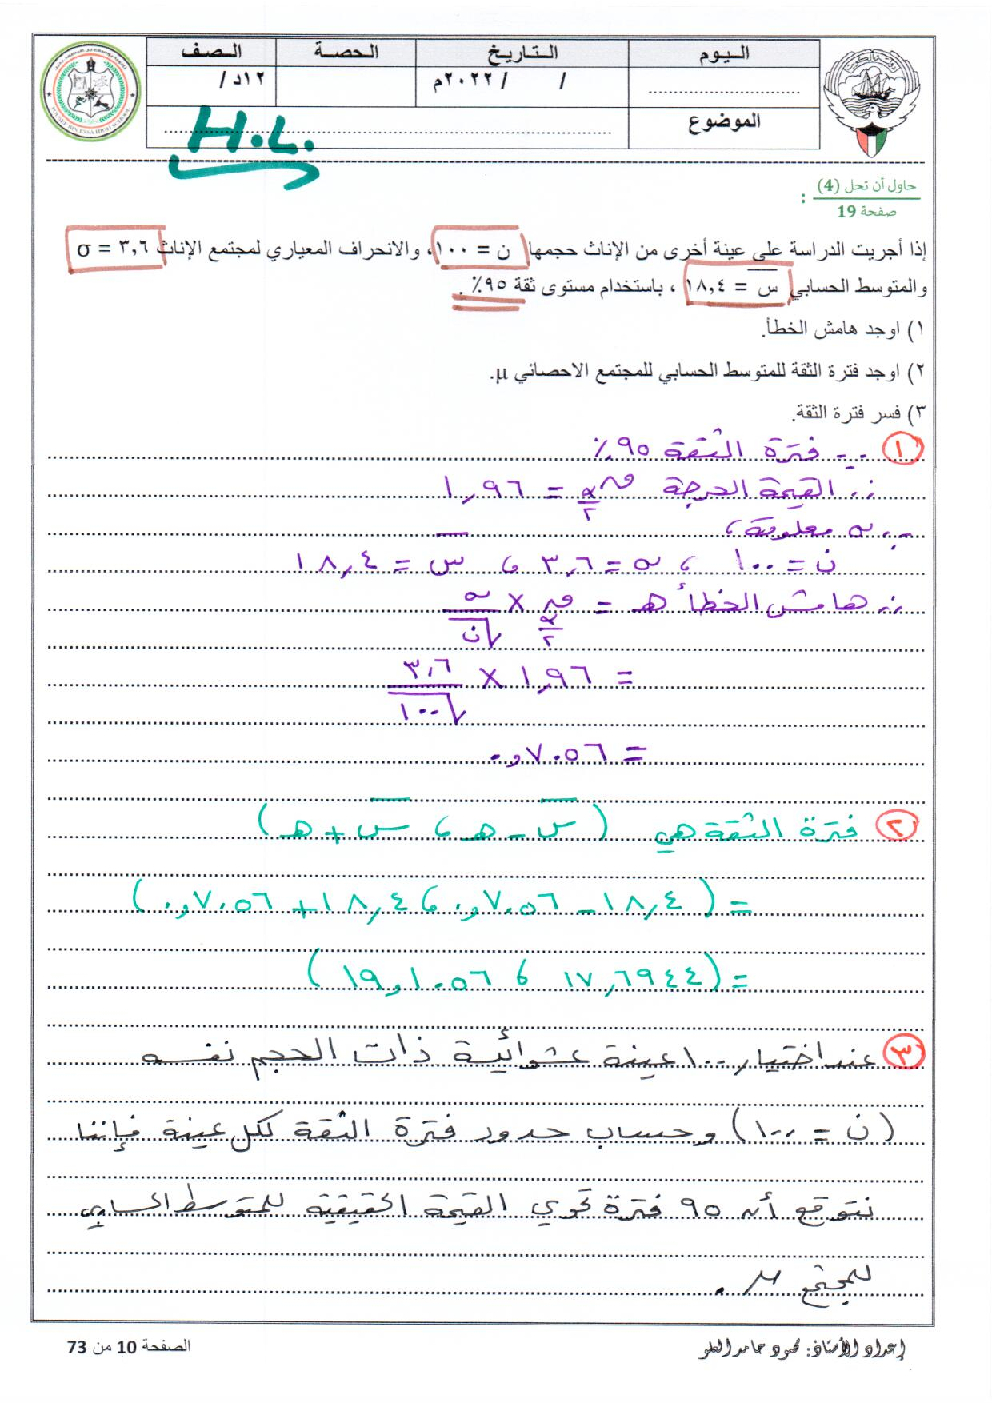 اليوم التاريخ الحصة الصف
/ / ٢٠٢٢م ١٢د /
الموضوع
H.L.
حاول أن تحل (4)
صفحة 19 :
إذا أجريت الدراسة على عينة أخرى من الإناث حجمها ن = ١٠٠، والانحراف المعياري لمجتمع الإناث σ = ٣,٦
والمتوسط الحسابي س̅ = ١٨,٤ ، باستخدام مستوى ثقة ٩٥٪ .
١) اوجد هامش الخطأ.
٢) اوجد فترة الثقة للمتوسط الحسابي للمجتمع الاحصائي μ.
٣) فسر فترة الثقة.
١ ∵ فترة الثقة ٩٥٪
∴ القيمة الحرجة ق α/٢ = ١,٩٦
∵ σ معلومة،
ن = ١٠٠ ، σ = ٣,٦ ، س̅ = ١٨,٤
∴ هامش الخطأ هـ = ق α/٢ × σ/√ن
= ١,٩٦ × ٣,٦/√١٠٠
= ٠,٧٠٥٦
٢ فترة الثقة هي (س̅ - هـ ، س̅ + هـ)
= (١٨,٤ - ٠,٧٠٥٦ ، ١٨,٤ + ٠,٧٠٥٦)
= (١٧,٦٩٤٤ ، ١٩,١٠٥٦)
٣ عند اختيار ١٠٠ عينة عشوائية ذات الحجم نفسه
(ن = ١٠٠) وحساب حدود فترة الثقة لكل عينة فإننا
نتوقع أن ٩٥ فترة تحوي القيمة الحقيقية للمتوسط الحسابي
للمجتمع μ .
إعداد الأستاذ: محمود حامد العلو
الصفحة 10 من 73